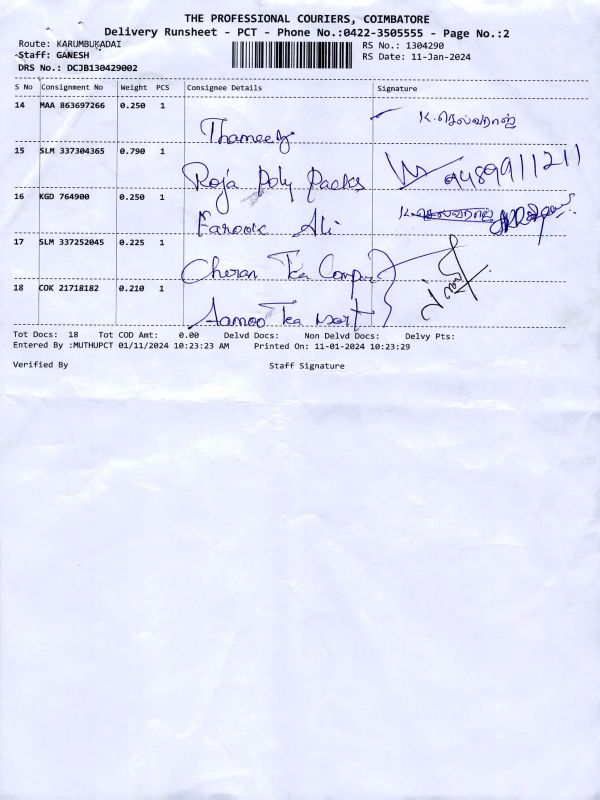 THE PROFESSIONAL COURIERS, COIMBATORE
Delivery Runsheet - PCT - Phone No.:0422-3505555 - Page No.:2
Route: KARUMBUKADAI RS No.: 1304290
Staff: GANESH RS Date: 11-Jan-2024
DRS No.: DCJB130429002
S No Consignment No Weight PCS Consignee Details Signature
14 MAA 863697266 0.250 1 K.செல்வராஜ்
Thameez
15 SLM 337304365 0.790 1 9489911211
Roja Poly Packs
16 KGD 764900 0.250 1
Farook Ali
17 SLM 337252045 0.225 1
Cheran Tea Company
18 COK 21718182 0.210 1
Aamoo Tea Mart
Tot Docs: 18 Tot COD Amt: 0.00 Delvd Docs: Non Delvd Docs: Delvy Pts:
Entered By :MUTHUPCT 01/11/2024 10:23:23 AM Printed On: 11-01-2024 10:23:29
Verified By Staff Signature